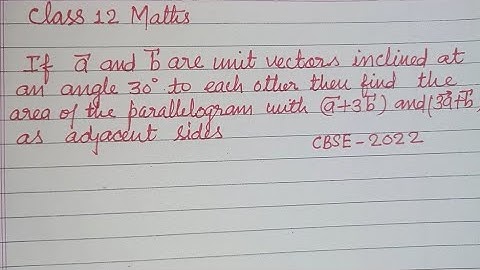 Class 12 Maths
If a⃗ and b⃗ are unit vectors inclined at
an angle 30° to each other then find the
area of the parallelogram with (a⃗+3b⃗) and (3a⃗+b⃗)
as adjacent sides
CBSE - 2022